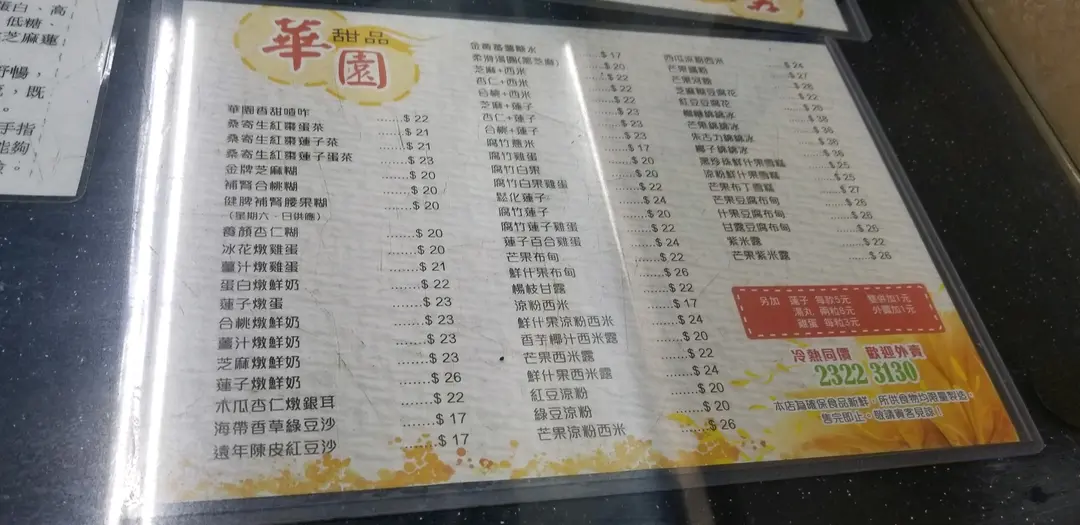 華園 甜品
華園香甜喳咋 ......$ 22
桑寄生紅棗蛋茶 ......$ 21
桑寄生紅棗蓮子茶 ......$ 21
桑寄生紅棗蓮子蛋茶 ......$ 23
金牌芝麻糊 ......$ 20
補腎合桃糊 ......$ 20
健脾補腎腰果糊 ......$ 20
(星期六、日供應)
養顏杏仁糊 ......$ 20
冰花燉雞蛋 ......$ 20
薑汁燉雞蛋 ......$ 21
蛋白燉鮮奶 ......$ 22
蓮子燉蛋 ......$ 23
合桃燉鮮奶 ......$ 23
薑汁燉鮮奶 ......$ 23
芝麻燉鮮奶 ......$ 23
蓮子燉鮮奶 ......$ 26
木瓜杏仁燉銀耳 ......$ 22
海帶香草綠豆沙 ......$ 17
遠年陳皮紅豆沙 ......$ 17
金黃蕃薯糖水 ......$ 17
柔滑湯圓(黑芝麻) ......$ 20
芝麻+西米 ......$ 22
杏仁+西米 ......$ 22
合桃+西米 ......$ 22
芝麻+蓮子 ......$ 23
杏仁+蓮子 ......$ 23
合桃+蓮子 ......$ 23
腐竹薏米 ......$ 17
腐竹雞蛋 ......$ 20
腐竹白果 ......$ 20
腐竹白果雞蛋 ......$ 22
鬆化蓮子 ......$ 24
腐竹蓮子 ......$ 20
腐竹蓮子雞蛋 ......$ 22
蓮子百合雞蛋 ......$ 24
芒果布甸 ......$ 22
鮮什果布甸 ......$ 26
楊枝甘露 ......$ 22
涼粉西米 ......$ 17
鮮什果涼粉西米 ......$ 24
香芋椰汁西米露 ......$ 20
芒果西米露 ......$ 22
鮮什果西米露 ......$ 24
紅豆涼粉 ......$ 20
綠豆涼粉 ......$ 20
芒果涼粉西米 ......$ 26
西瓜涼粉西米 ......$ 24
芒果腸粉 ......$ 27
芒果河粉 ......$ 26
芝麻糊豆腐花 ......$ 22
紅豆豆腐花 ......$ 20
榴槤綿綿冰 ......$ 38
芒果綿綿冰 ......$ 36
朱古力綿綿冰 ......$ 36
椰子綿綿冰 ......$ 36
黑珍珠鮮什果雪糕 ......$ 25
涼粉鮮什果雪糕 ......$ 25
芒果布丁雪糕 ......$ 27
芒果豆腐布甸 ......$ 26
什果豆腐布甸 ......$ 26
甘露豆腐布甸 ......$ 26
紫米露 ......$ 22
芒果紫米露 ......$ 26
另加 蓮子 每款5元 雙併加1元
湯丸 兩粒6元 外賣加1元
雞蛋 每粒3元
冷熱同價 歡迎外賣
2322 3130
本店為確保食品新鮮，所供食物均限量製造，
售完即止，敬請賓客見諒！